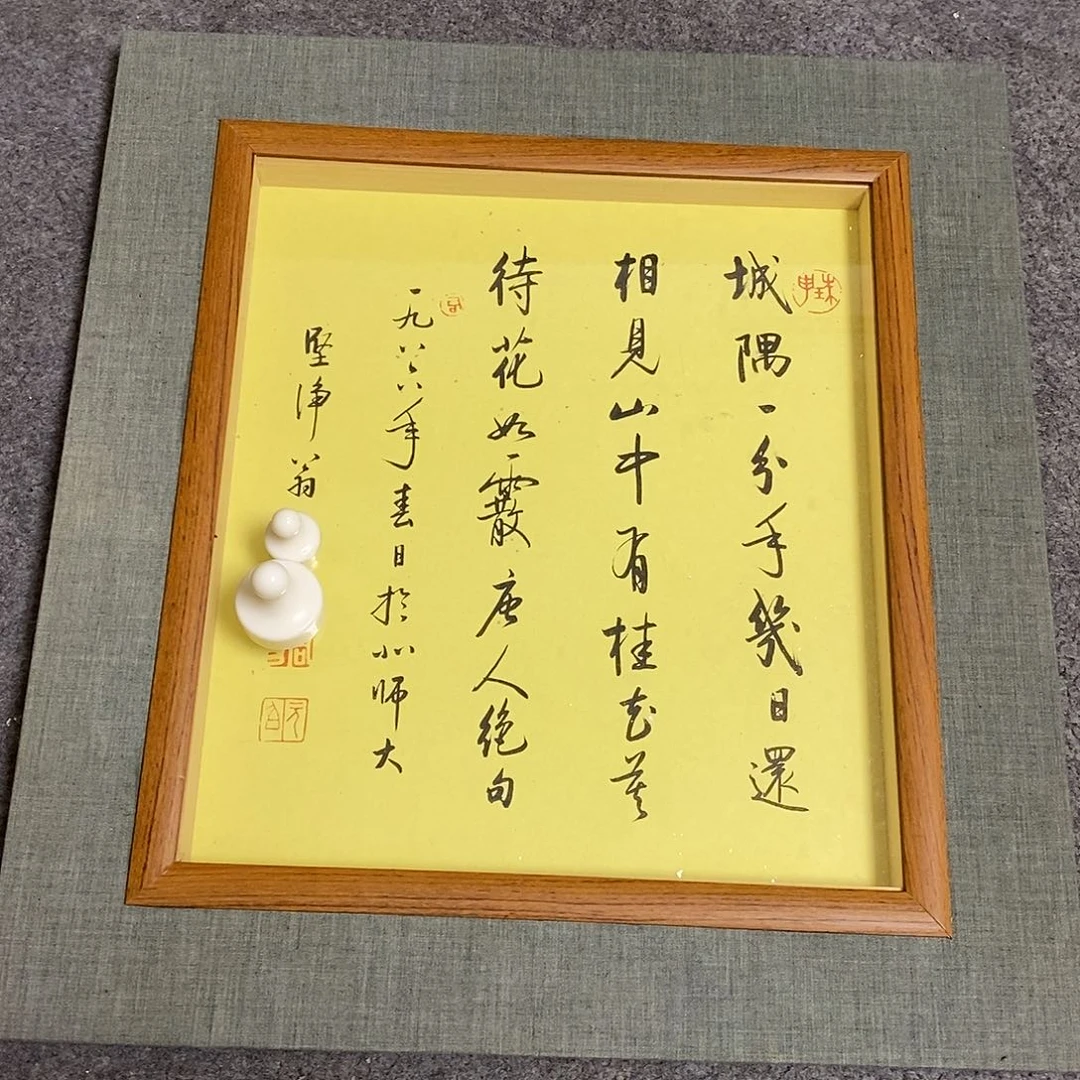 城隅一分手幾日還
相見山中有桂花莫
待花如霰唐人絕句
一九八六年春日於北师大
堅净翁
元白